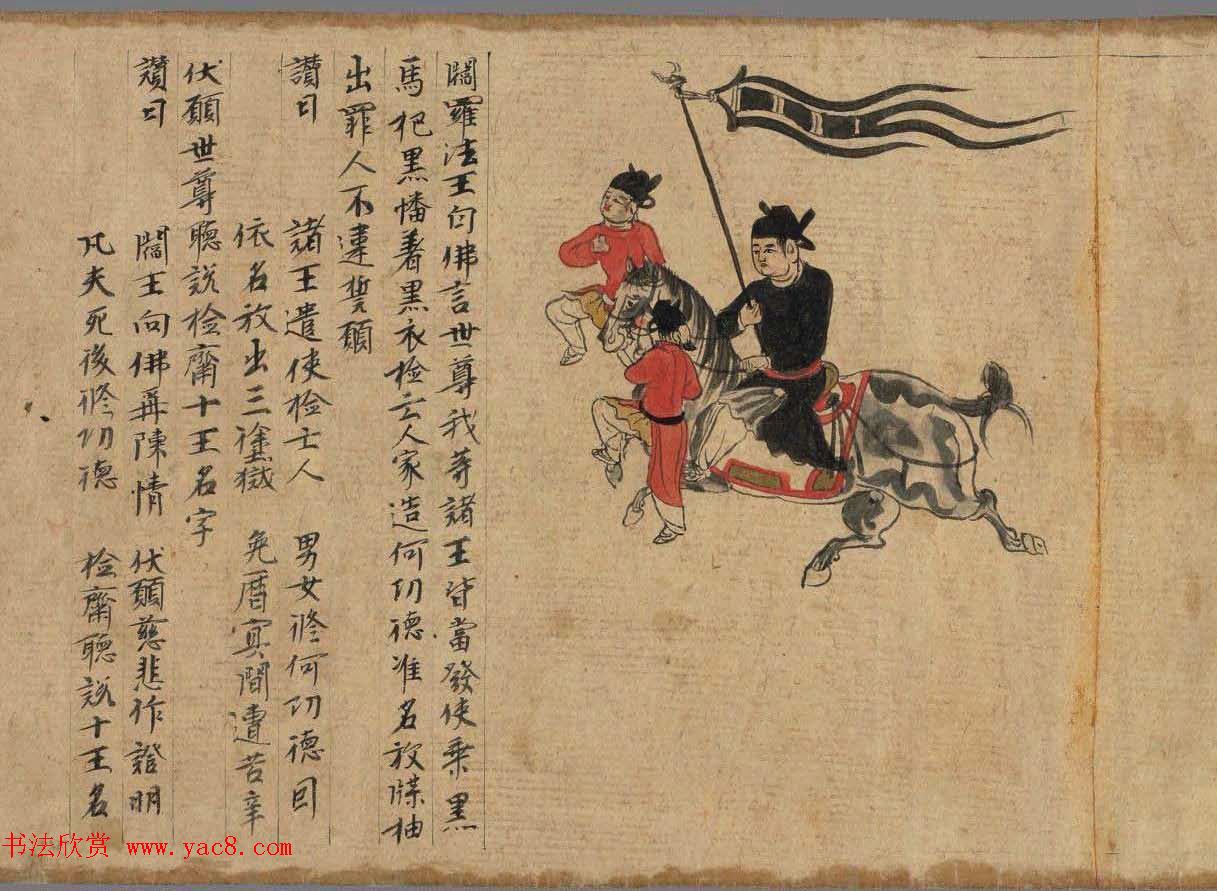 閻羅法王白佛言世尊我等諸王皆當發使乗黑
馬把黒幡着黒衣檢亡人家造何功德准名放牒抽
出罪人不違誓願
讚曰 諸王遣使檢亡人 男女修何功德因
依名放出三塗獄 免曆冥間遭苦辛
伏願世尊聽説檢齋十王名字
讚曰 閻王向佛再陳情 伏願慈悲作證明
凡夫死後修功德 檢齋聽説十王名
书法欣赏 www.yac8.com